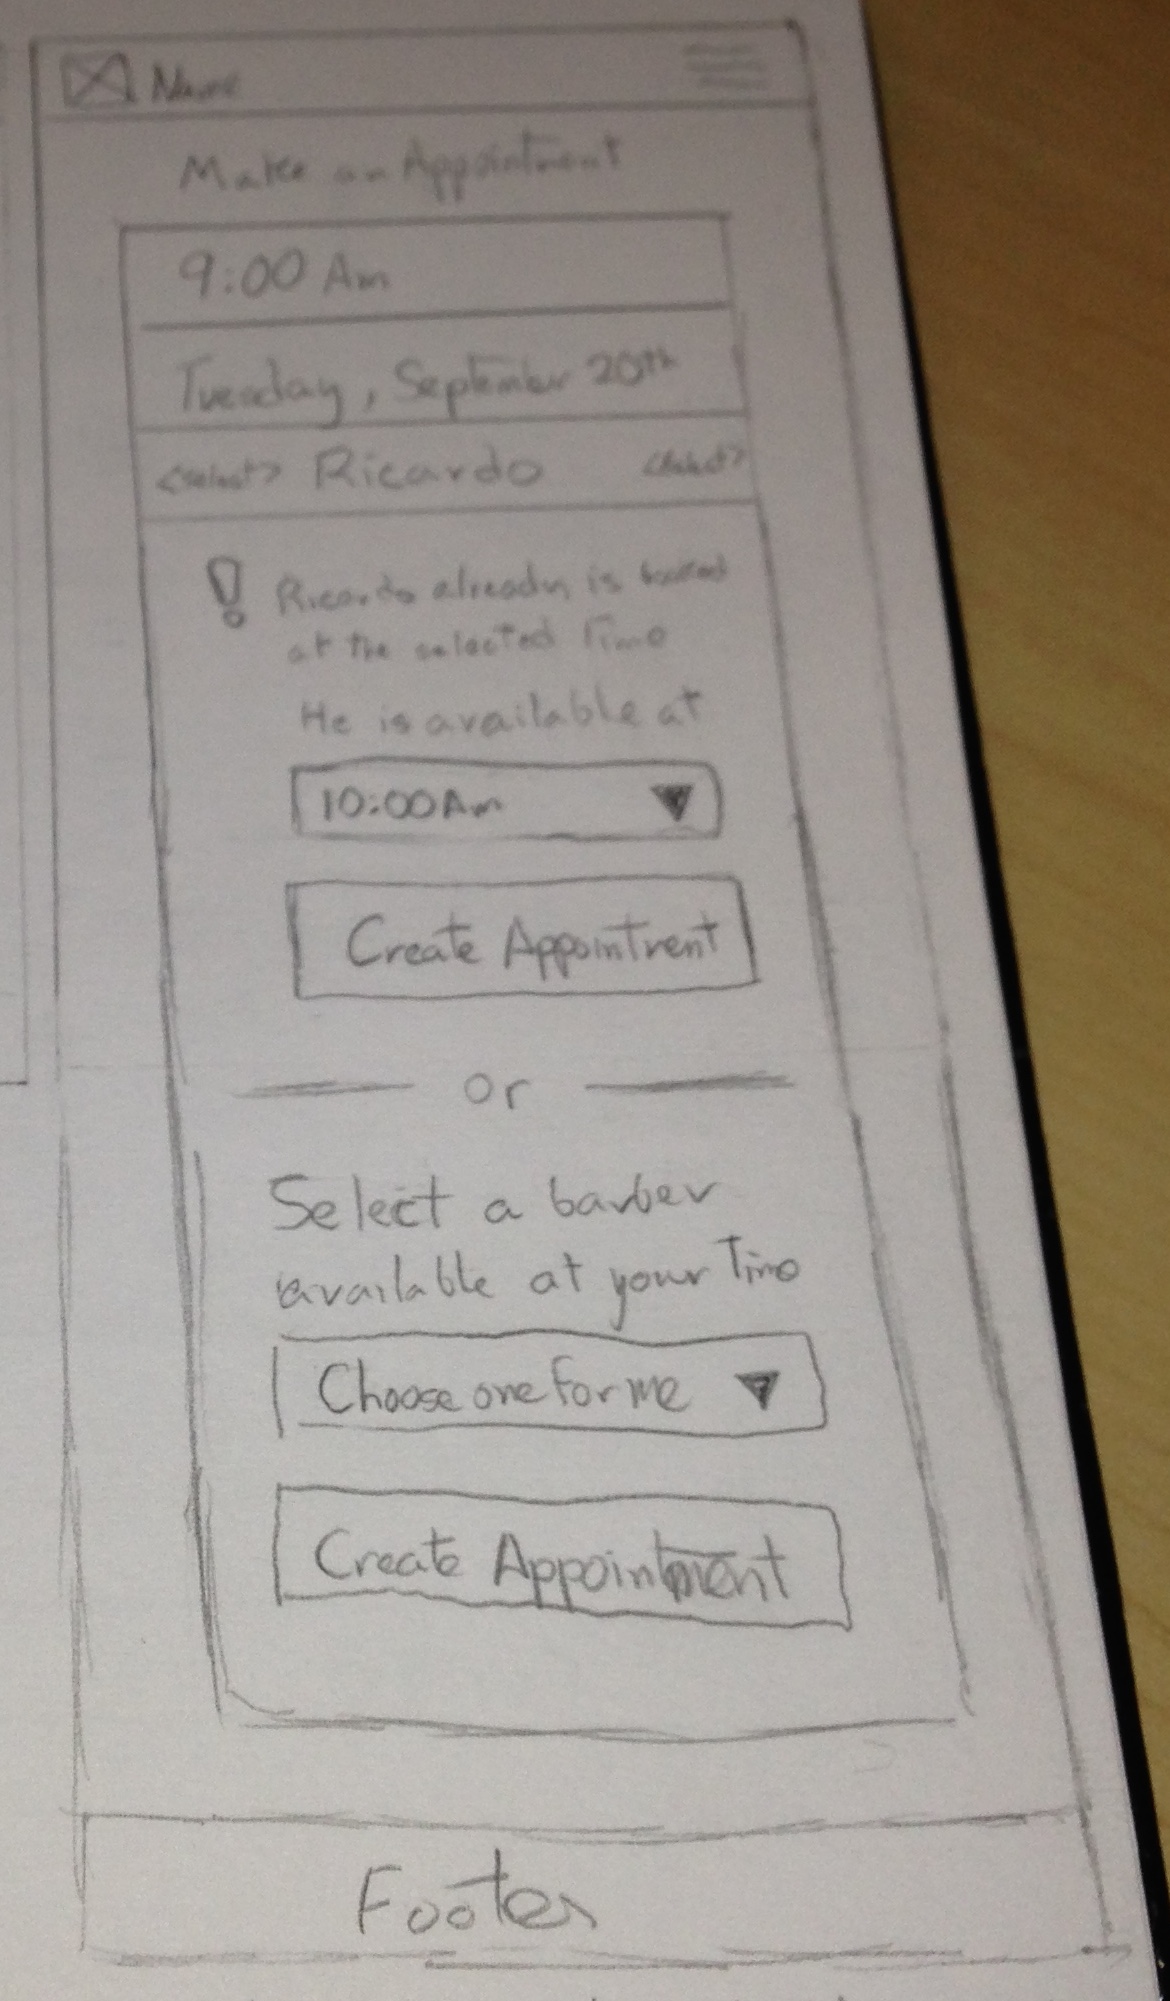 Name
Make an Appointment
9:00 Am
Tuesday, September 20th
<select> Ricardo <select>
! Ricardo already is booked
at the selected Time
He is available at
10:00 Am
Create Appointment
Or
Select a barber
available at your Time
Choose one for me
Create Appointment
Footer